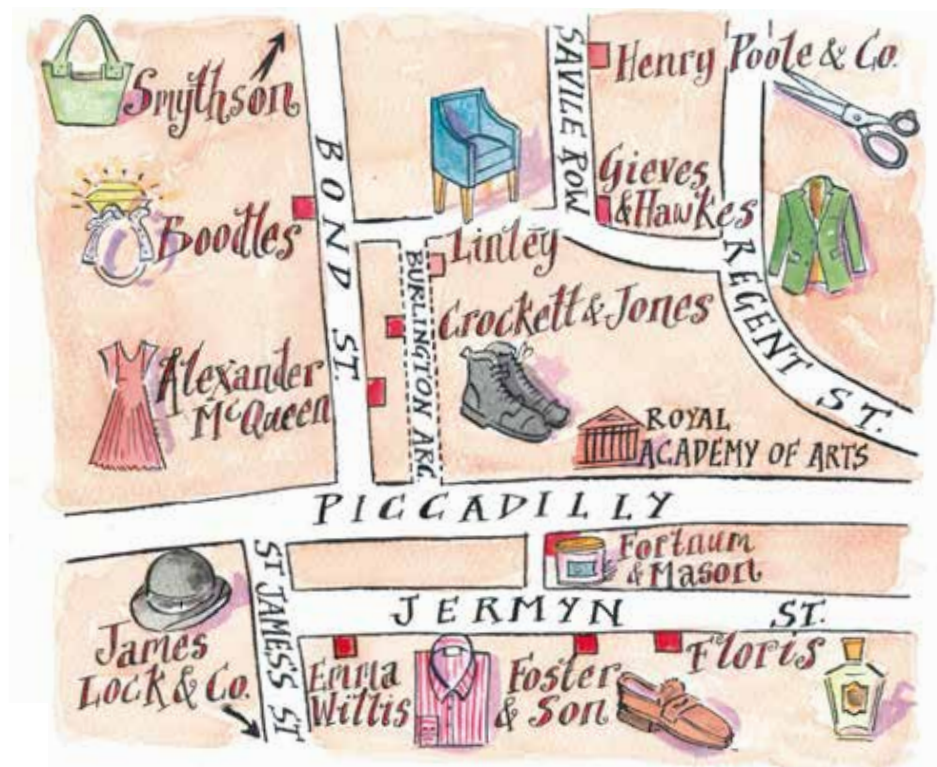 Smythson
Henry Poole & Co.
SAVILE ROW
BOND ST.
Gieves
& Hawkes
Boodles
Linley
BURLINGTON ARC.
REGENT ST.
Crockett & Jones
Alexander
McQueen
ROYAL
ACADEMY OF ARTS
PICCADILLY
Fortnum
& Mason
ST JAMES'S ST
JERMYN ST.
James
Lock & Co.
Emma
Willis
Foster
& Son
Floris